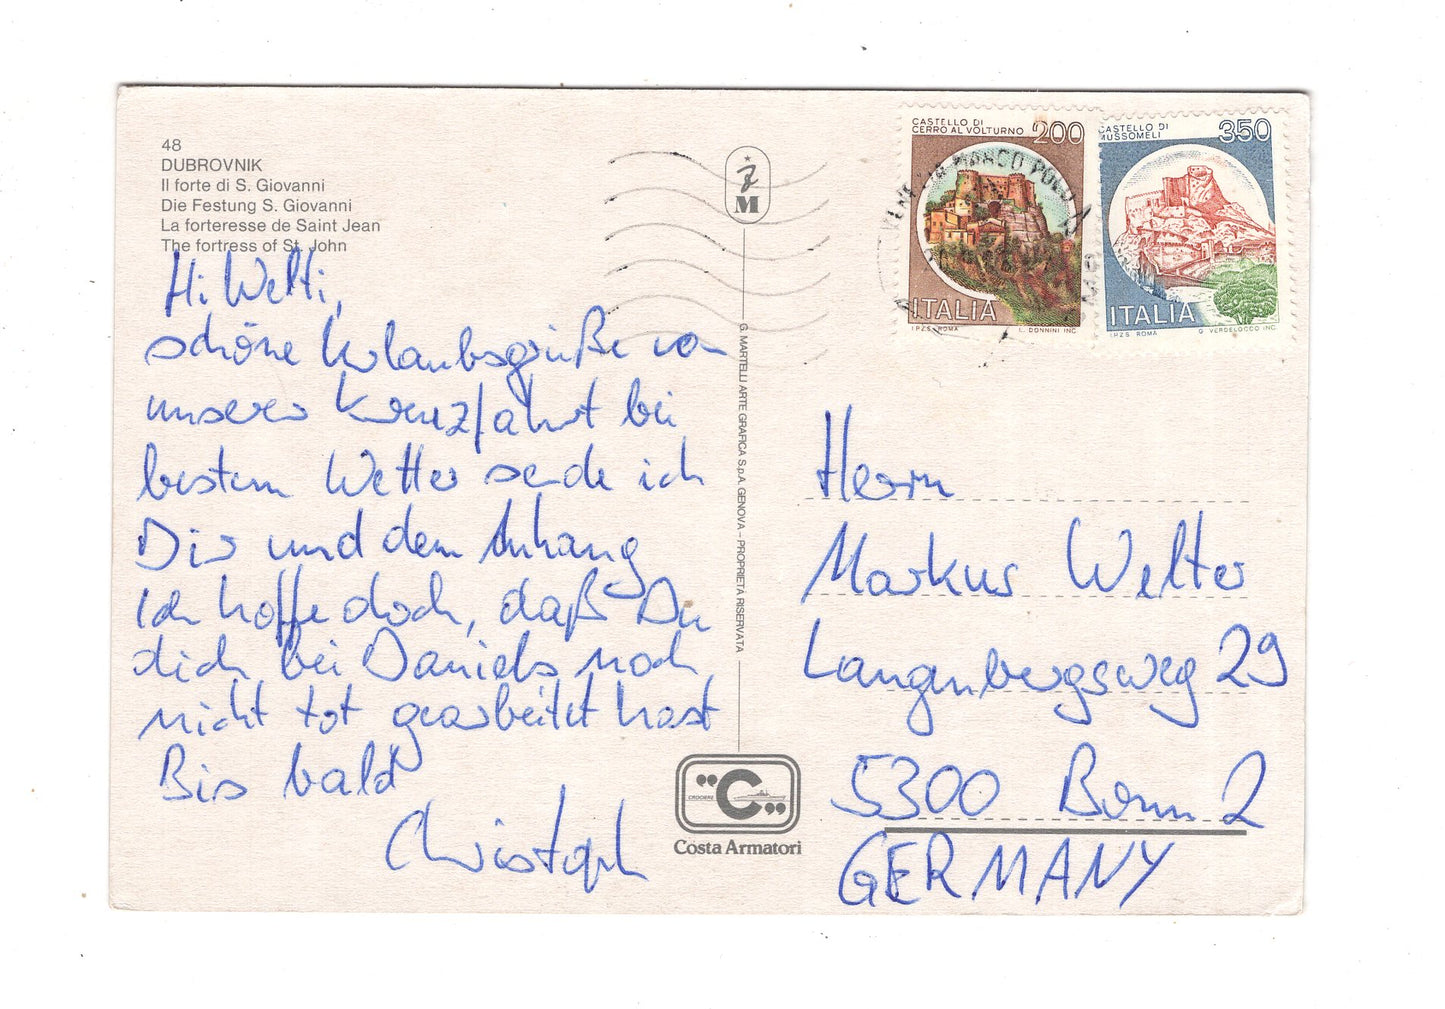 48
DUBROVNIK
Il forte di S. Giovanni
Die Festung S. Giovanni
La forteresse de Saint Jean
The fortress of St. John
Hi Welti,
schöne Urlaubsgrüße von
unserer Kreuzfahrt bei
bestem Wetter sende ich
Dir und dem Anhang
Ich hoffe doch, daß Du
dich bei Daniels noch
nicht tot gearbeitet hast
Bis bald
Christoph
M
G. MARTELLI ARTE GRAFICA S.p.A. GENOVA – PROPRIETÀ RISERVATA
"C"
CROCIERE
Costa Armatori
CASTELLO DI
CERRO AL VOLTURNO 200
ITALIA
I.P.Z.S. ROMA L. DONNINI INC.
CASTELLO DI
MUSSOMELI 350
ITALIA
I.P.Z.S. ROMA G. VERDELOCCO INC.
MARCO POLO
Herrn
Markus Welter
Langenbergsweg 29
5300 Bonn 2
GERMANY